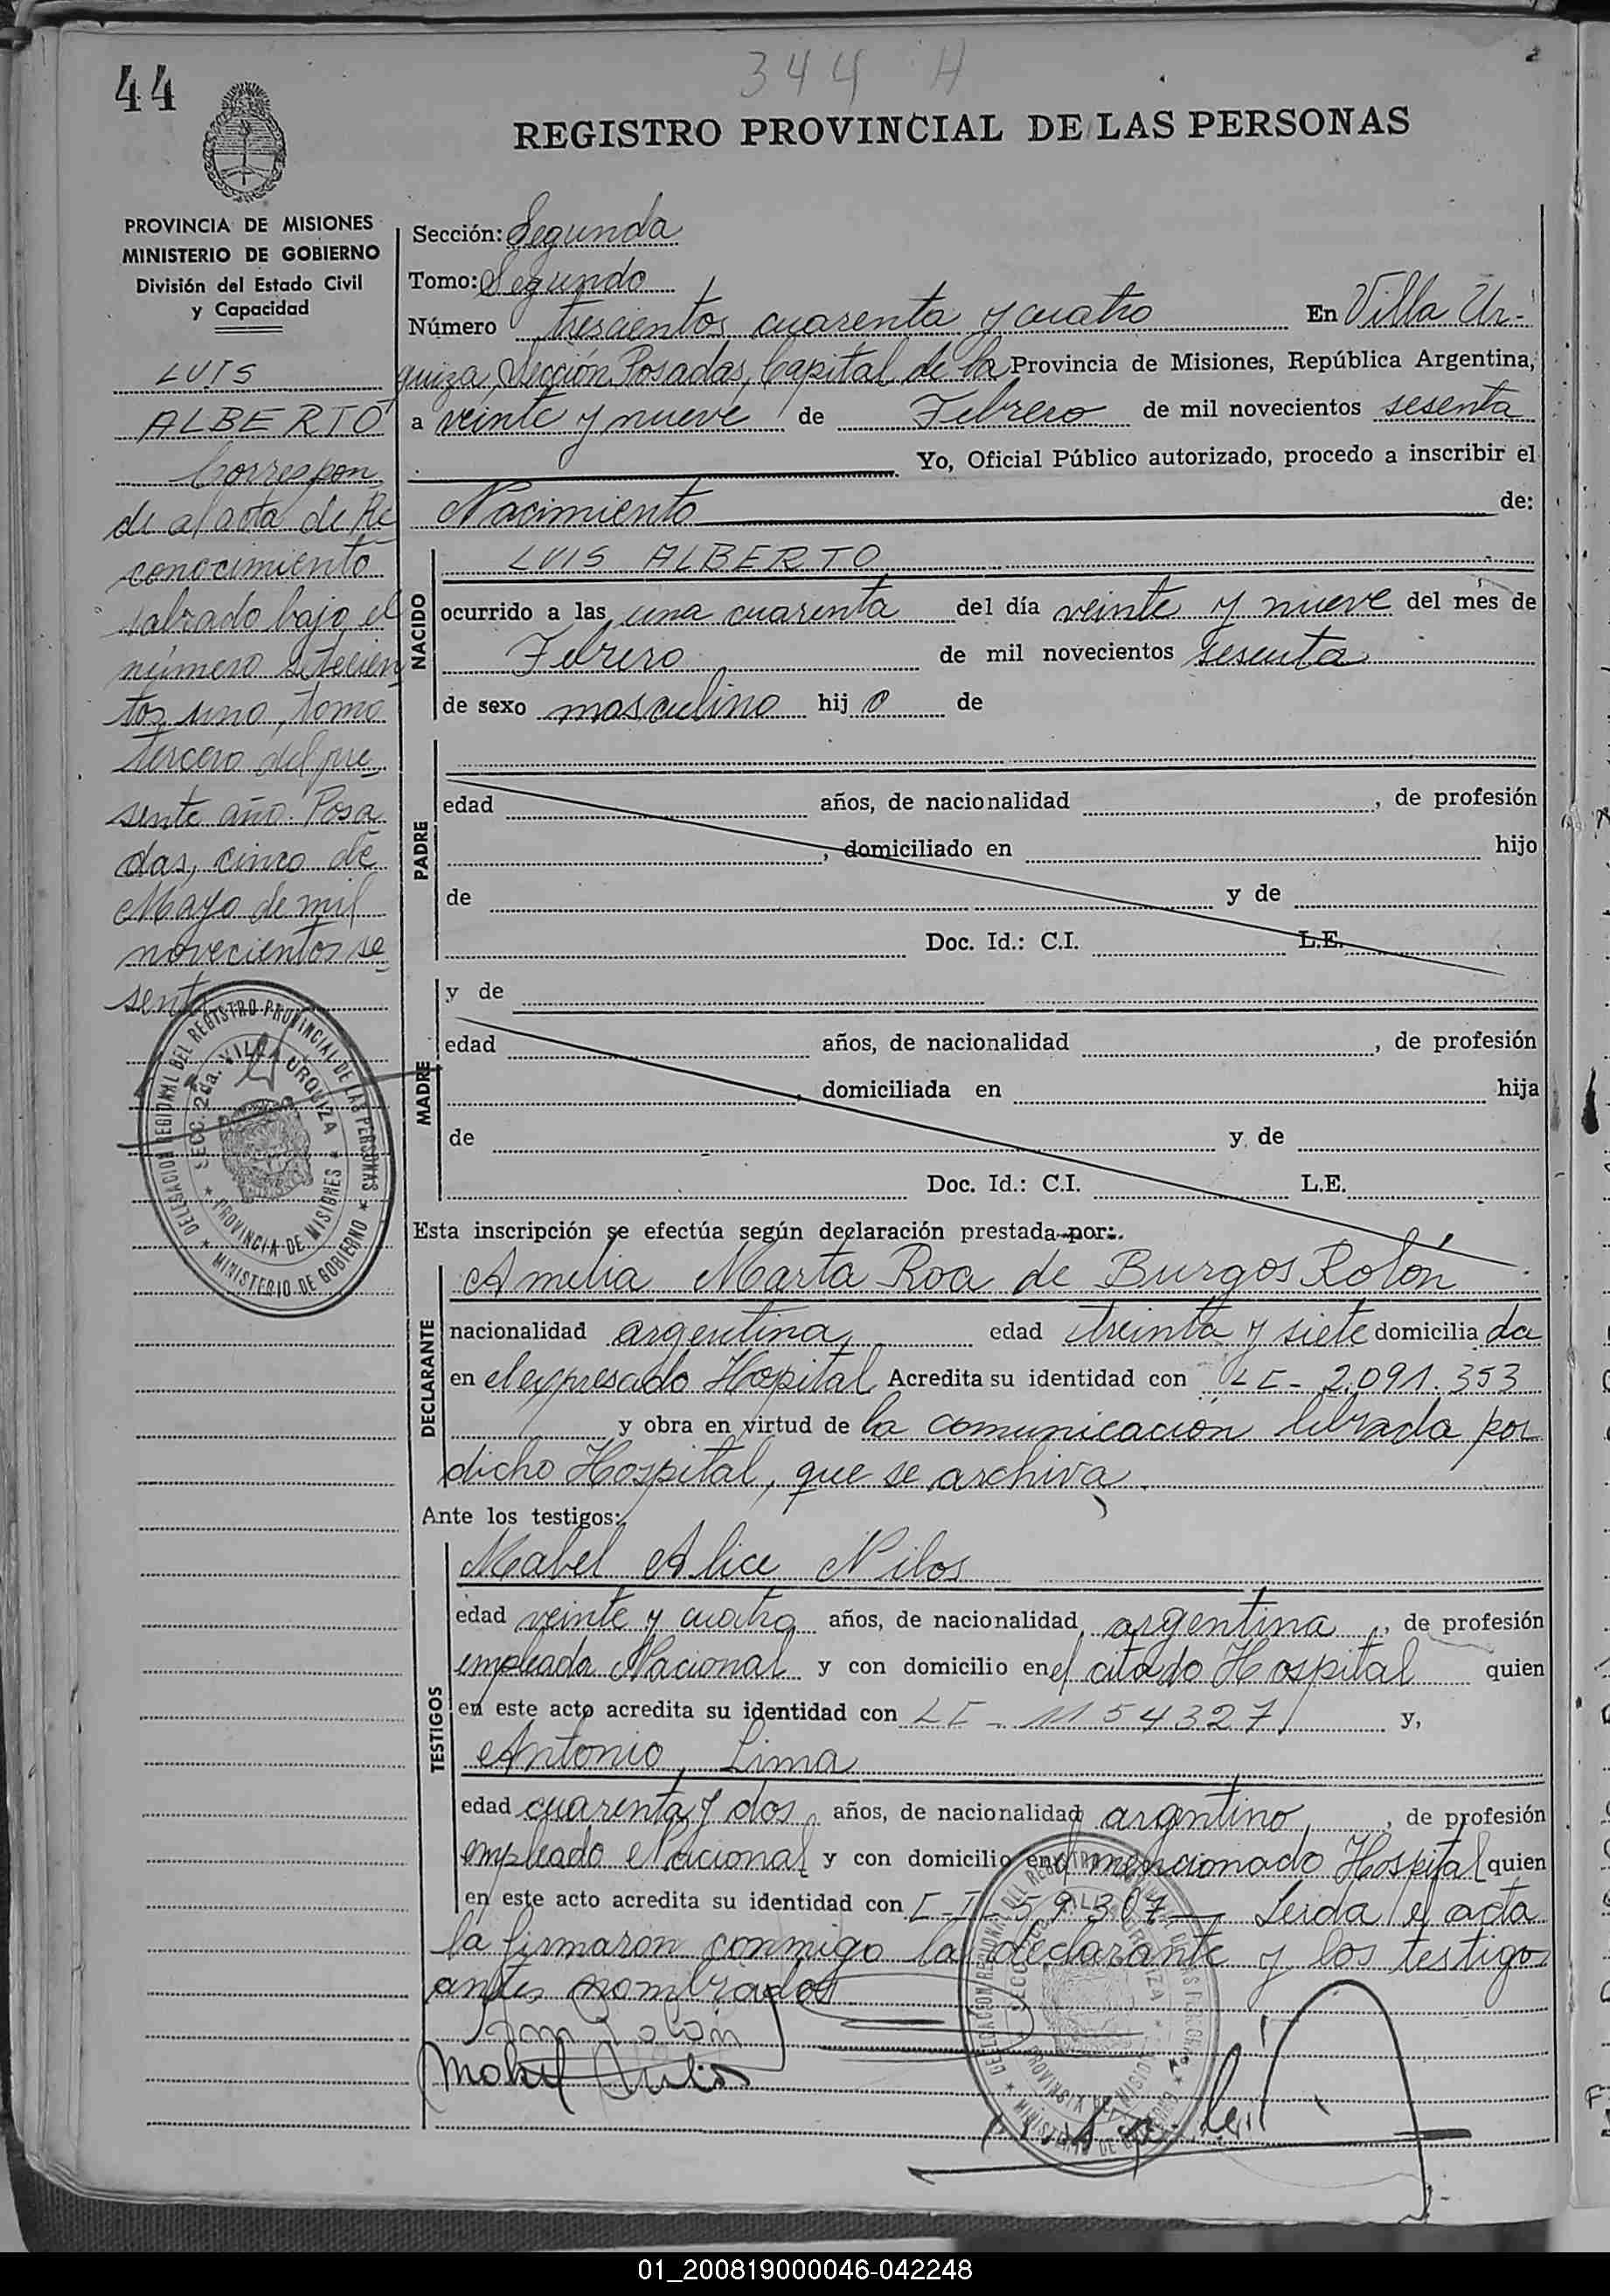 344 H
44
REGISTRO PROVINCIAL DE LAS PERSONAS
PROVINCIA DE MISIONES
MINISTERIO DE GOBIERNO
División del Estado Civil
y Capacidad
LUIS
ALBERTO
Correspon
de al acta de Re
conocimiento
labrado bajo el
número setecien
tos uno, tomo
tercero del pre
sente año. Posa
das, cinco de
Mayo de mil
novecientos se
senta
DELEGACION REGIONAL DEL REGISTRO PROVINCIAL DE LAS PERSONAS
SECC. 2da. VILLA URQUIZA
PROVINCIA DE MISIONES
MINISTERIO DE GOBIERNO
Sección: Segunda
Tomo: Segundo
Número trescientos cuarenta y cuatro En Villa Ur-
quiza, Sección Posadas, Capital de la Provincia de Misiones, República Argentina,
a veinte y nueve de Febrero de mil novecientos sesenta
Yo, Oficial Público autorizado, procedo a inscribir el
Nacimiento de:
NACIDO
LUIS ALBERTO
ocurrido a las una cuarenta del día veinte y nueve del mes de
Febrero de mil novecientos sesenta
de sexo masculino hij o de
PADRE
edad años, de nacionalidad , de profesión
, domiciliado en hijo
de y de
Doc. Id.: C.I. L.E.
MADRE
y de
edad años, de nacionalidad , de profesión
, domiciliada en hija
de y de
Doc. Id.: C.I. L.E.
Esta inscripción se efectúa según declaración prestada por:
DECLARANTE
Amelia Marta Roa de Burgos Rolón
nacionalidad argentina edad treinta y siete domicilia da
en el expresado Hospital Acredita su identidad con LC- 2.091.353
y obra en virtud de la comunicación librada por
dicho Hospital, que se archiva
Ante los testigos:
TESTIGOS
Mabel Alice Nilos
edad veinte y cuatro años, de nacionalidad argentina , de profesión
empleada Nacional y con domicilio en el citado Hospital quien
en este acto acredita su identidad con LC - 1154327 y,
Antonio Lima
edad cuarenta y dos años, de nacionalidad argntino , de profesión
empleado Nacional y con domicilio en el mencionado Hospital quien
en este acto acredita su identidad con 59307 Leida el acta
la firmaron conmigo la declarante y los testigos
antes nombrados
DELEGACION REGIONAL DEL REGISTRO
MINISTERIO DE GOBIERNO
01_200819000046-042248